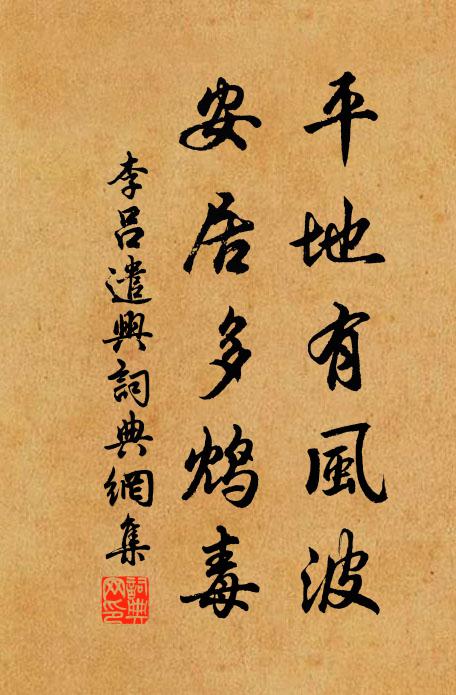 平地有風波
安居多鴆毒
李呂遣興詞典網集
詞典網印